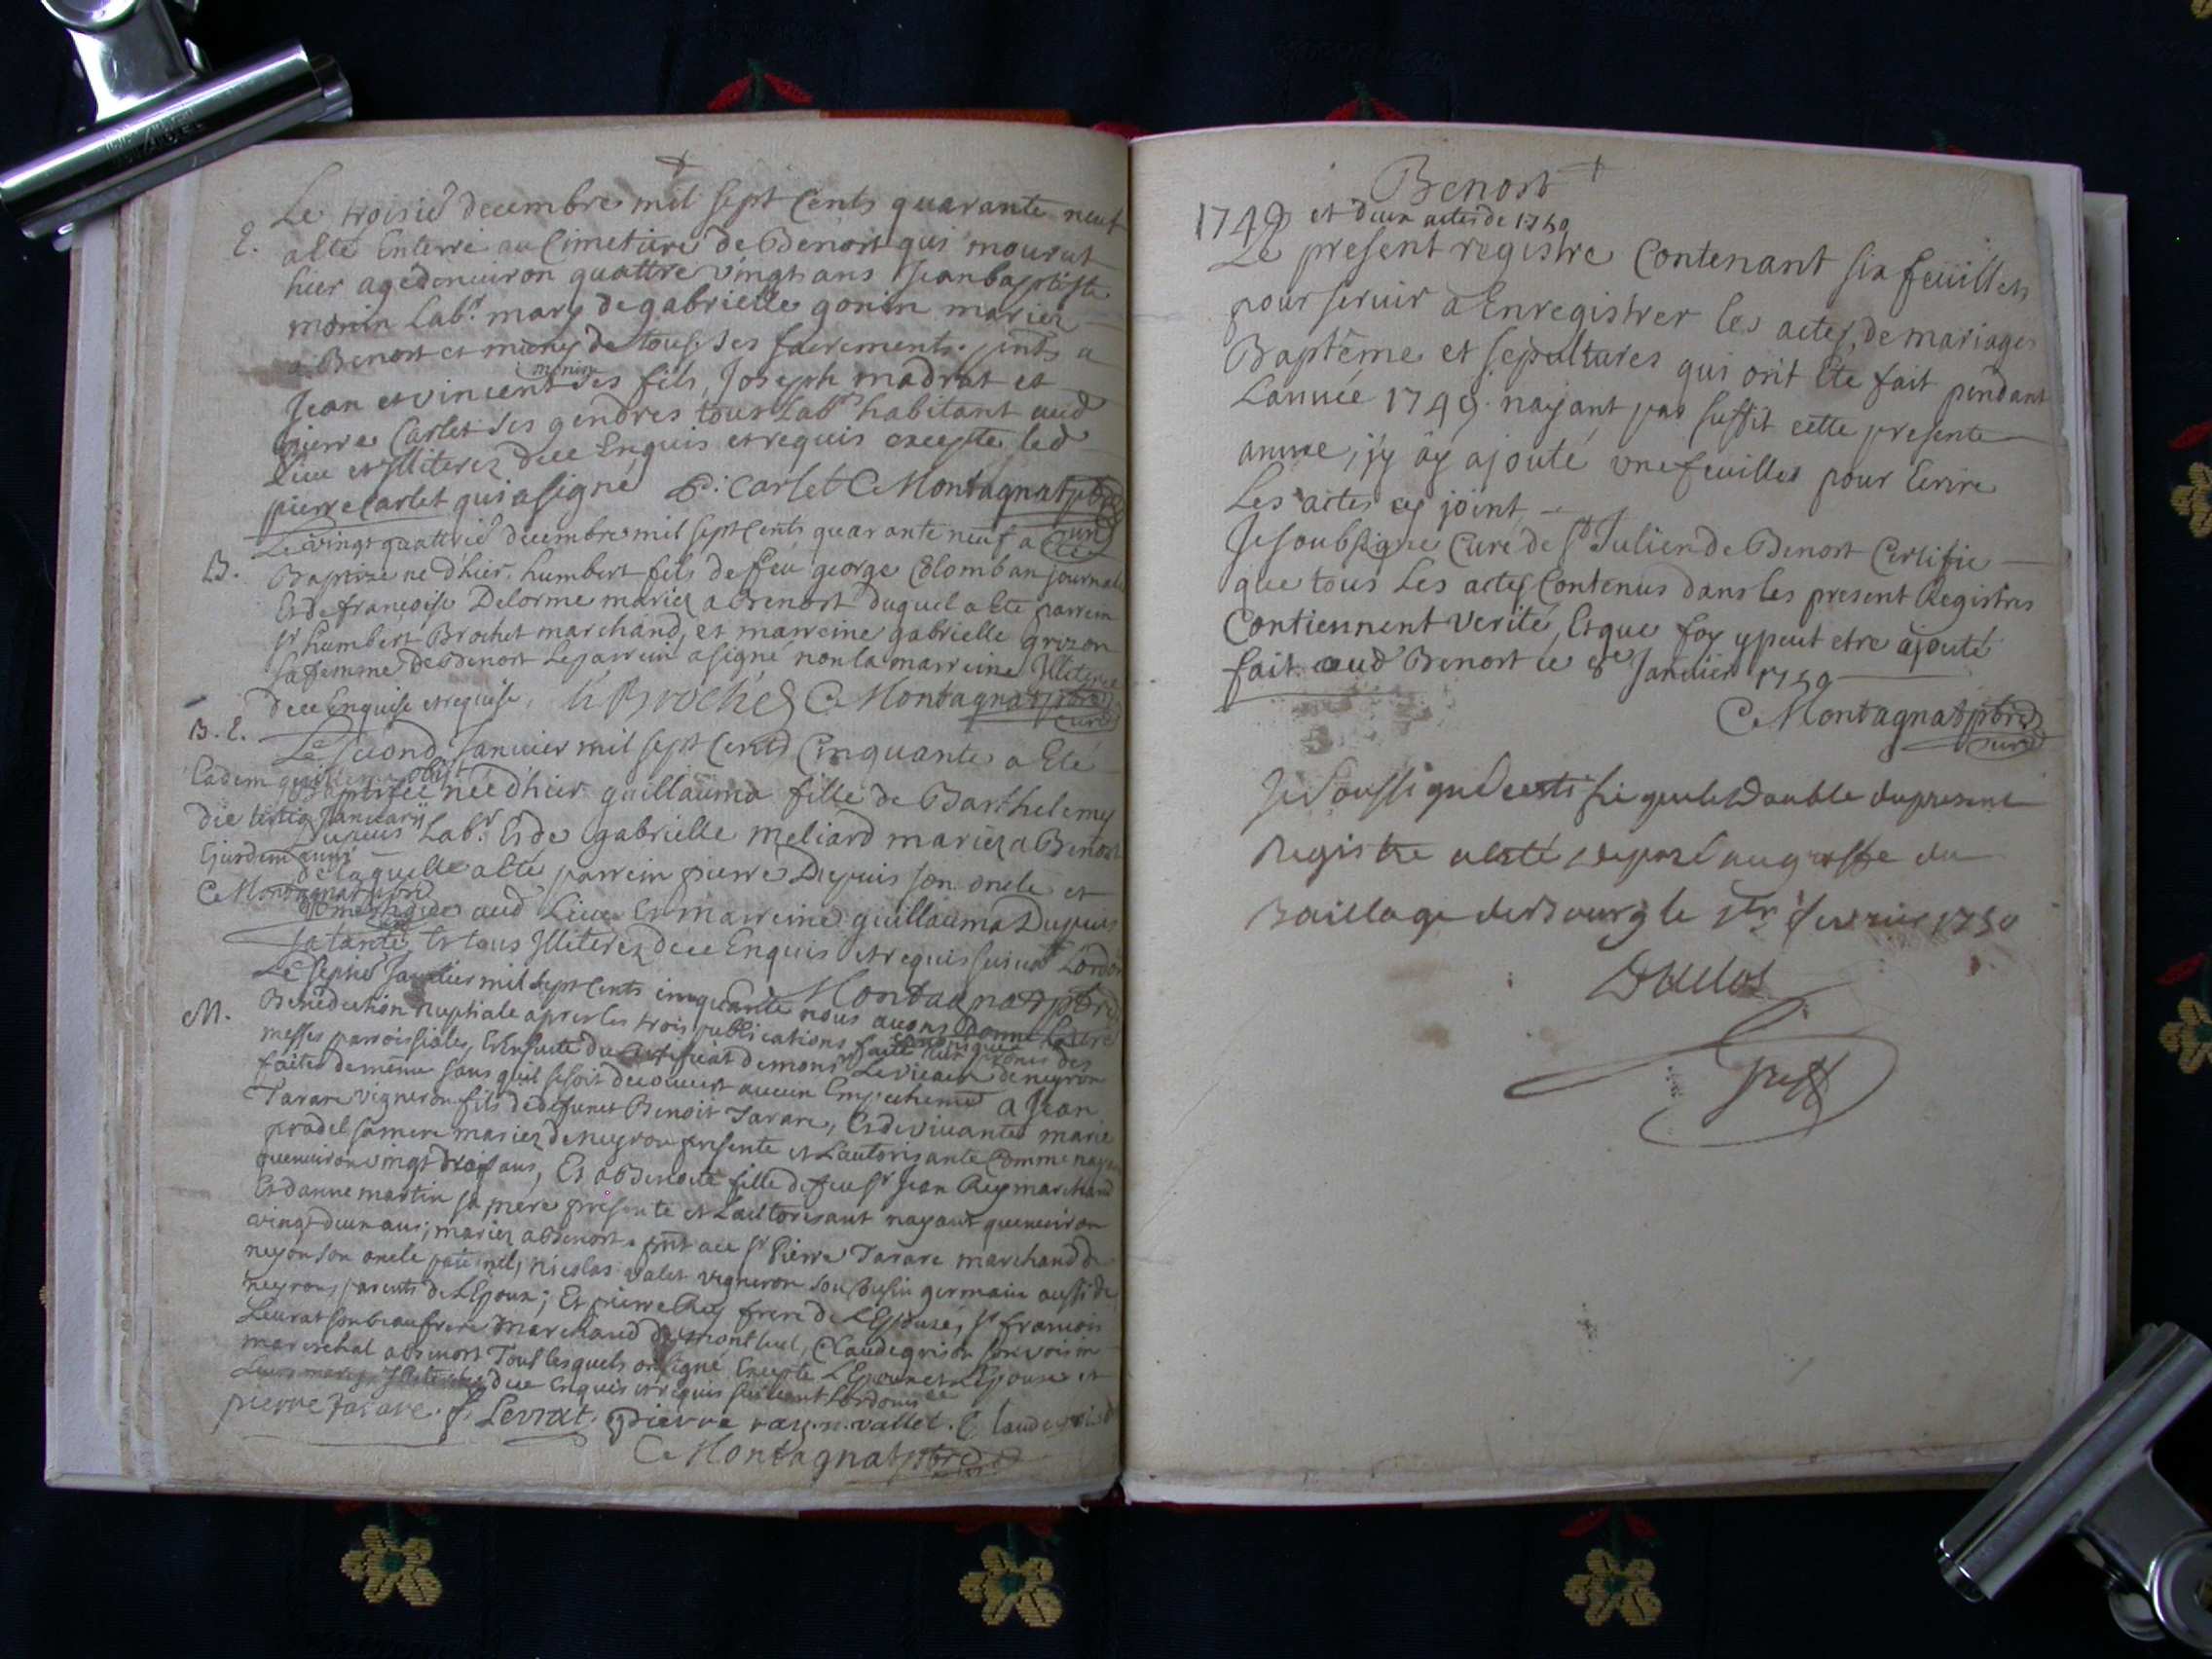 Le troisie decembre mil sept cents quarante neuf
E. a Ete Enterré au Cimetiere de Benost qui mourut
hier agé denuiron quattre vingt ans Jean baptiste
monin Labr. mary de gabrielle gonin mariez
a Benost et muny de tous ses sacrements. pnts a
monin
Jean et vincent ses fils, Joseph madrat et
pierre Carlet ses gendres tous Labrs habitant aud
Lieu et Illiterez dece Enquis et requis excepte led
pierre Carlet qui a signé P: Carlet C Montagnat pbre
curé
Le vingt quattrie decembre mil sept cents quarante neuf a Ete
B. Baptize ne d'hier, humbert fils de feu george Colomban journalie
Et de francoise Delorme mariez a Benost duquel a Ete parrein
sr humbert Brochet marchand, et marreine gabrielle grizon
sa femme de Benost Le parrein a signé non la marreine Illiteree
dece Enquise et requise, h Brochet C Montagnat pbre
curé
B. E.
Le second Janvier mil sept cents Cinquante a Eté
Eadem guillauma obiit
Baptisée née d'hier guillauma fille de Barthelemy
die tertia Januarij
Dupuis Labr. Et de gabrielle meliard mariez a Benost
Ejusdem anni
de laquelle a Ete parrein pierre Dupuis son oncle et
C Montagnat pbre
aud Lieu Et marreine guillauma Dupuis
sa tante, Et tous Illiterez dece Enquis et requis suivt Lordon
Montagnat pbre
Le septie Janvier mil sept cents cinquante nous avons donné Lautre
M. Benediction Nuptiale apres les trois publications faite aux prones des
messes parroissiales, Et Ensuite du Certificat de monsr Le vicaire de neyron
faites de même sans qu'il se soit decouvert aucun Empechemt a Jean
Tarare vigneron fils de defunct Benoit Tarare, Et de vivante marie
pradel sa mere mariez de neyron presente et Lautorisante Comme nayant
quenviron vingt trois ans, Et a Benoite fille de feu sr Jean Rey marchand
Et danne martin sa mere presente et Lautorisant nayant quenviron
vingt deux ans; mariez a Benost. pnt ace sr Pierre Tarare marchand de
neyron son oncle paternel, nicolas valet vigneron son Cousin germain aussi de
neyron, parents de LEpoux; Et pierre Rey frere de LEpouse, sr francois
Leurat son beaufrere marchand de montluel, Claude grison son voisin
mareschal a Benost Tous lesquels on signé Excepte LEpoux et LEpouse et
dece Enquis et requis suivant Lordonnce
pierre tarare. f. Levrat. pierre ray. n. vallet. Claude grison
C Montagnat pbre
Benost
1749 et deux actes de 1750
Le present registre Contenant six feüillets
pour servir a Enregistrer les actes de mariages
Baptême et sepultures qui ont Ete fait pendant
L'année 1749. nayant pas suffit cette presente
annee, j'y ay ajouté une feuilles pour Ecrire
Les actes cy joint
Je soubsigné Curé de St Julien de Benost Certifie
que tous Les actes Contenus dans les present Registres
Contiennent verité, Et que foy y peut etre ajouté
fait aud Benost ce 8e Janvier 1750
C Montagnat pbre
curé
Je Soussigné certifie que le Double du present
Registre a esté deposé au greffe du
Baillage de Bourg le 1er fevrier 1750
Greff